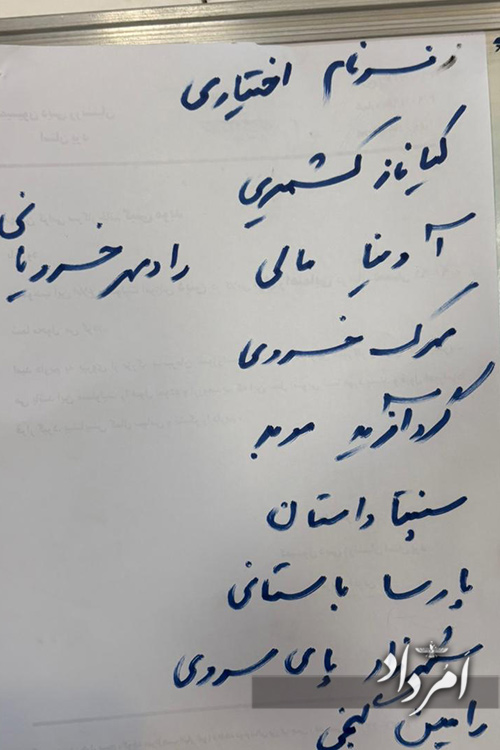 فرنام اختیاری
کیاناز کشمیری
آدرینا مالی رادمهر خسرویانی
مهرک خسروی
گردآفرید موبد
سپنتا داستان
پارسا باستانی
شهرزاد پای سروی
رامین گنجی
امرداد